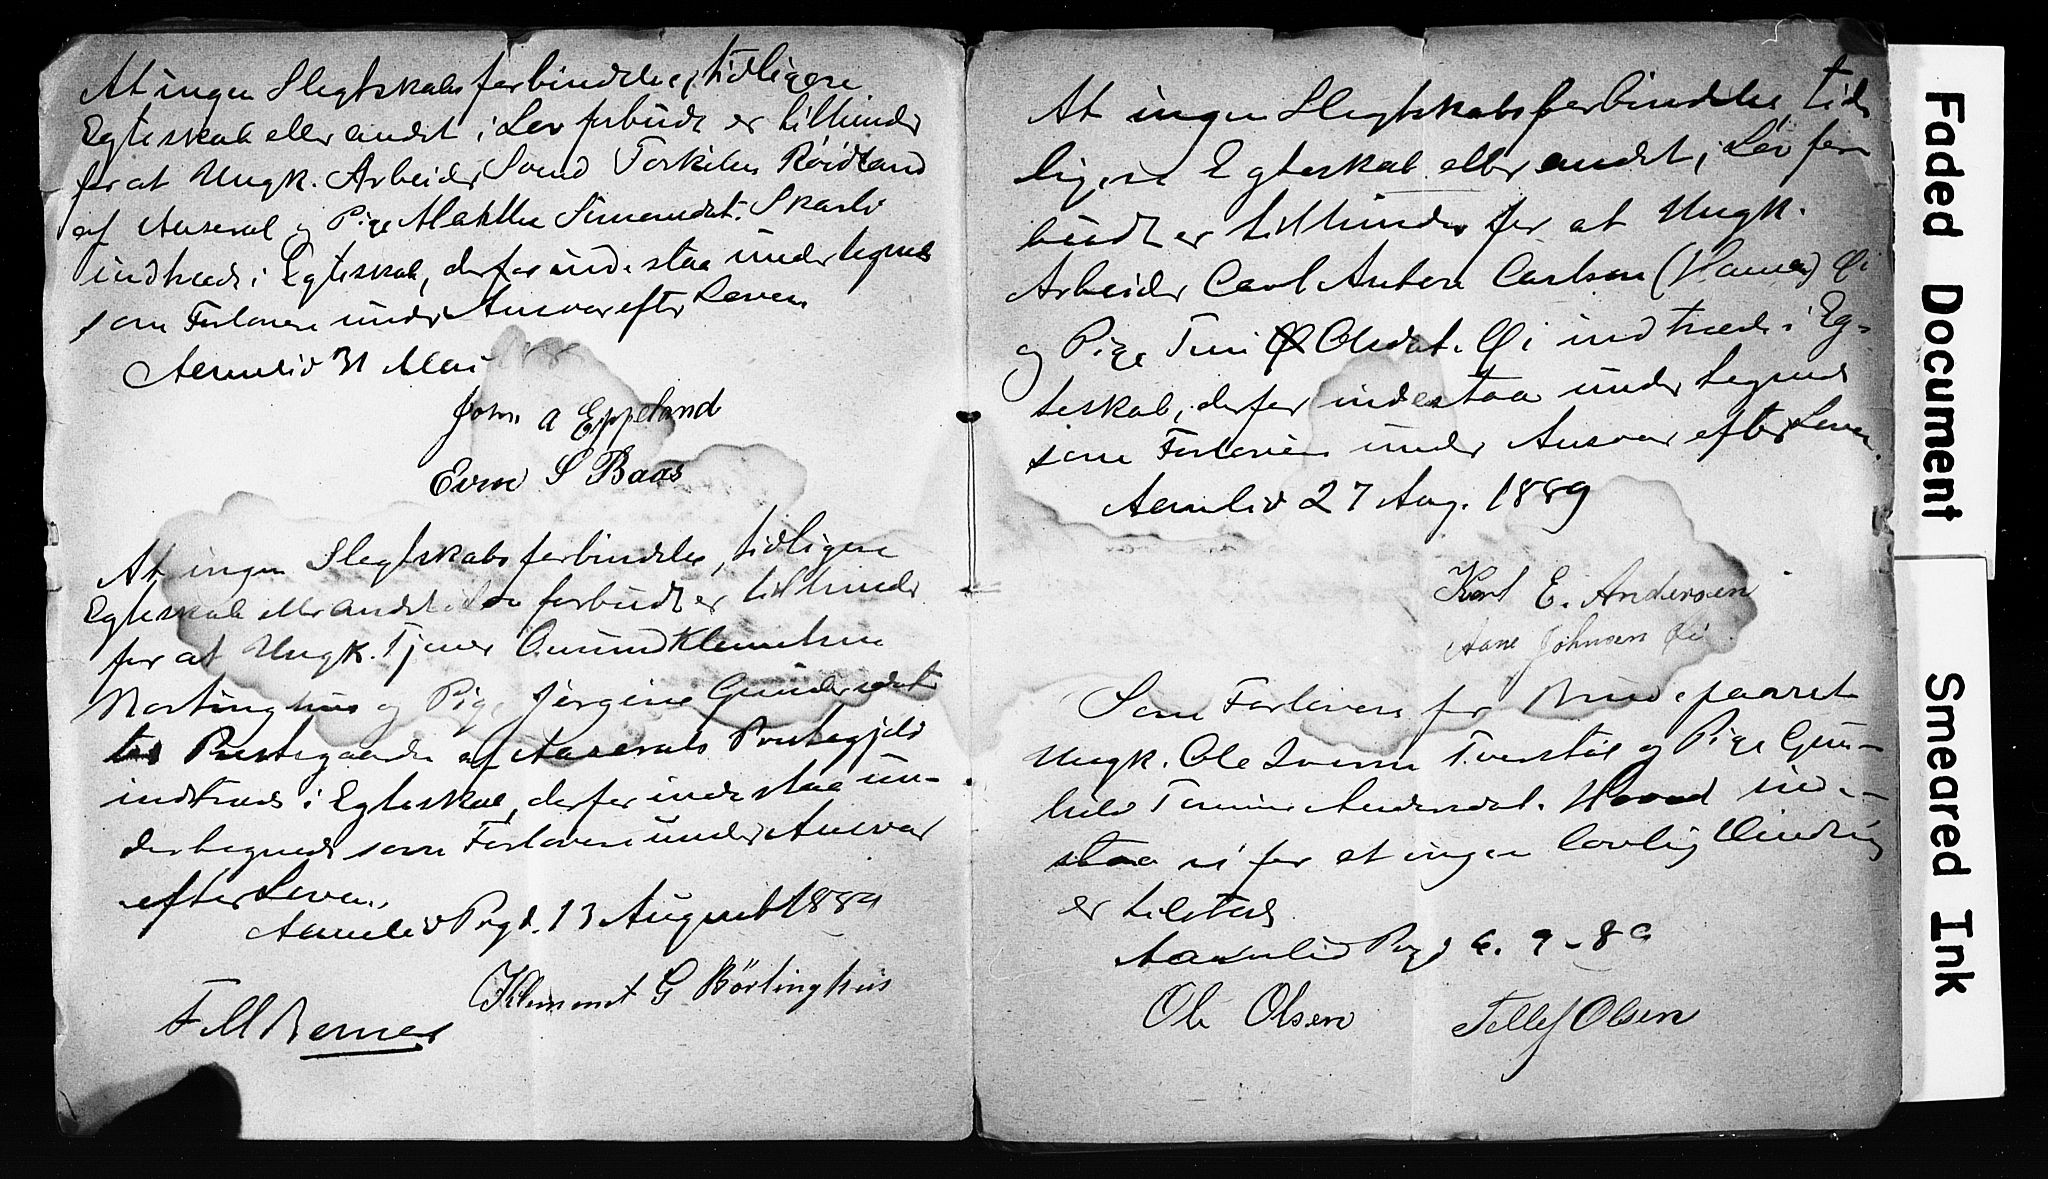 At ingen Slegtskabsforbindelse, tidligere
Egteskab eller andet i Lov forbudt er til Hinder
for at Ungk. Arbeider Svend Torkilsen Röidland
af Aaseral og Pige Mathilde Simonsdat. Skarli
indtræde i Egteskab, derfor indestaa undertegnede
som Forlovere under Ansvar efter Loven
Aamliid 31 Mai
John A Eppeland
Even S Baas
At ingen Slegtskabsforbindelse, tidligere
Egteskab eller andet i Lov forbudt er til Hinder
for at Ungk. Tjener Omund Klemetsen
og Pige Jörgine Gundersdat.
Prestegaarden af Aaserals Prestegjeld
indtræde i Egteskab, derfor indestaa un-
dertegnede som Forlovere under Ansvar
efter Loven.
Aamliid Prgd. 13 August 1889
Klemmet G Börtinghus
At ingen Slegtskabsforbindelse tid-
ligere Egteskab eller andet i Lov for-
budt er til Hinder for at Ungk.
Arbeider Carl Anton Carlsen (Hansen) Öi
og Pige Tini Olsdat. Öi indtræde i Eg-
teskab, derfor indestaa undertegnede
som Forlovere under Ansvar efter Loven.
Aamliid 27 Aug. 1889
Karl E. Andersen
Aane Johnsen Öi
Som Forlovere for Brudeparret
Ungk. Ole Iversen Tveistöl og Pige Gun-
hild Tomine Andersdat. Hoved inde-
staa vi for at ingen lovlig Hindring
er tilstede
Aamliid Prgd 6. 9 - 89
Ole Olsen Tellef Olsen
Faded Document
Smeared Ink